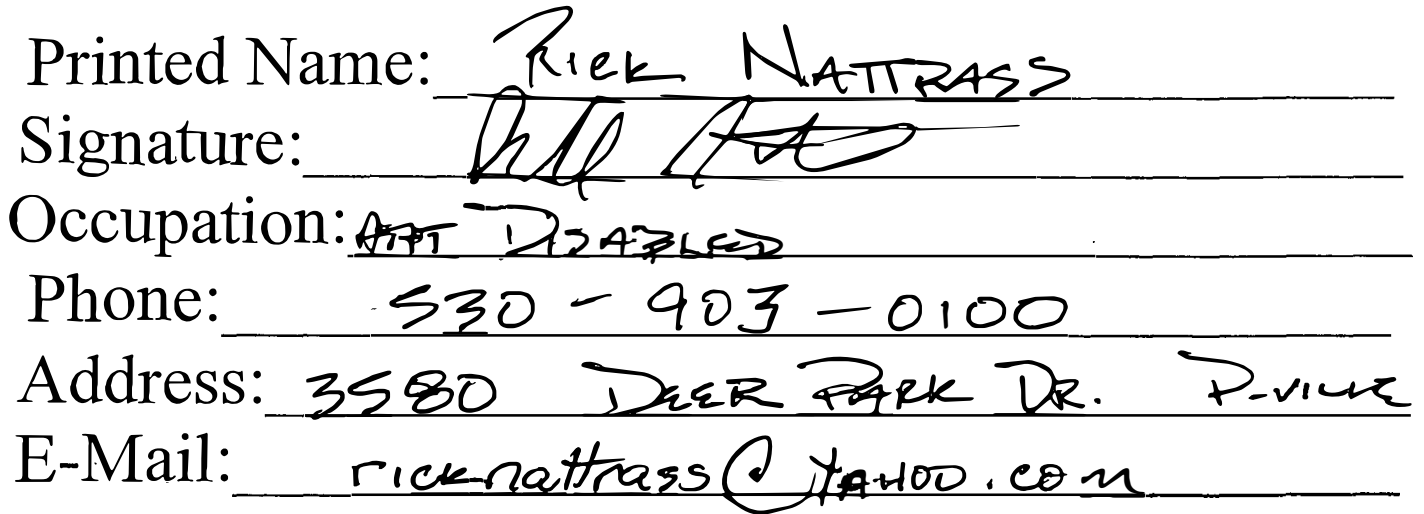 Printed Name: Rick Nattrass
Signature:
Occupation: Disabled
Phone: 530-903-0100
Address: 3580 Deer Park Dr. P-ville
E-Mail: ricknattrass@yahoo.com